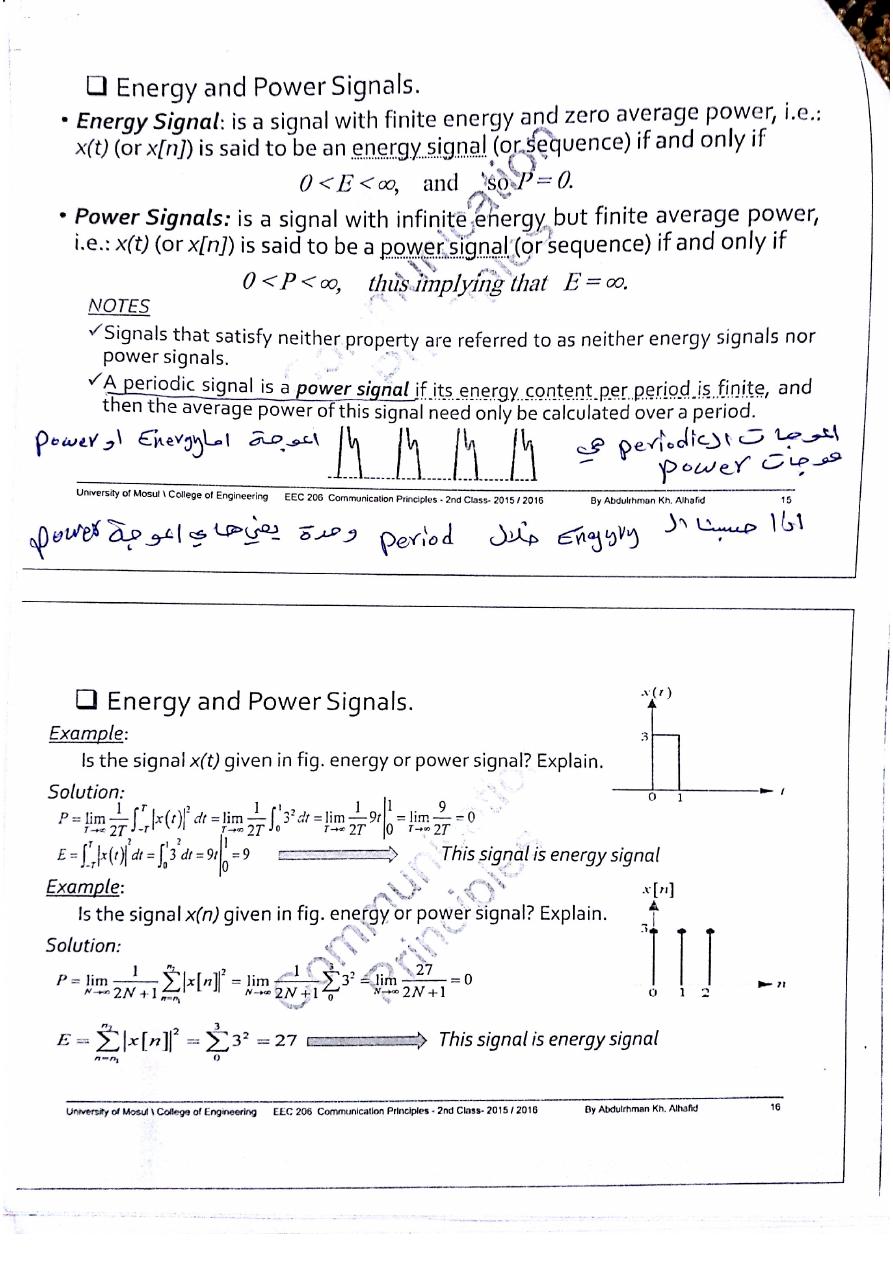 ❑ Energy and Power Signals.
• Energy Signal: is a signal with finite energy and zero average power, i.e.:
x(t) (or x[n]) is said to be an energy signal (or sequence) if and only if
0 < E < ∞, and so P = 0.
• Power Signals: is a signal with infinite energy but finite average power,
i.e.: x(t) (or x[n]) is said to be a power signal (or sequence) if and only if
0 < P < ∞, thus implying that E = ∞.
NOTES
✓Signals that satisfy neither property are referred to as neither energy signals nor
power signals.
✓A periodic signal is a power signal if its energy content per period is finite, and
then the average power of this signal need only be calculated over a period.
الموجات الـ periodic هي
موجات power
الموجة اما Energy او power
University of Mosul \ College of Engineering EEC 206 Communication Principles - 2nd Class- 2015 / 2016 By Abdulrhman Kh. Alhafid 15
اذا حسبنا الـ خلال period وحدة يعني هاي الموجة power
Communication
Principles
❑ Energy and Power Signals.
Example:
Is the signal x(t) given in fig. energy or power signal? Explain.
x(t)
3
0 1 t
Solution:
P = lim T→∞ 1/2T ∫_{-T}^{T} |x(t)|² dt = lim T→∞ 1/2T ∫_0^1 3² dt = lim T→∞ 1/2T 9t |_0^1 = lim T→∞ 9/2T = 0
E = ∫_{-T}^{T} |x(t)|² dt = ∫_0^1 3² dt = 9t |_0^1 = 9 This signal is energy signal
Example:
Is the signal x(n) given in fig. energy or power signal? Explain.
x[n]
3
0 1 2 n
Solution:
P = lim N→∞ 1/2N+1 ∑_{n=n₁}^{n₂} |x[n]|² = lim N→∞ 1/2N+1 ∑_0^3 3² = lim N→∞ 27/2N+1 = 0
E = ∑_{n=n₁}^{n₂} |x[n]|² = ∑_0^3 3² = 27 This signal is energy signal
Communication
Principles
University of Mosul \ College of Engineering EEC 206 Communication Principles - 2nd Class- 2015 / 2016 By Abdulrhman Kh. Alhafid 16